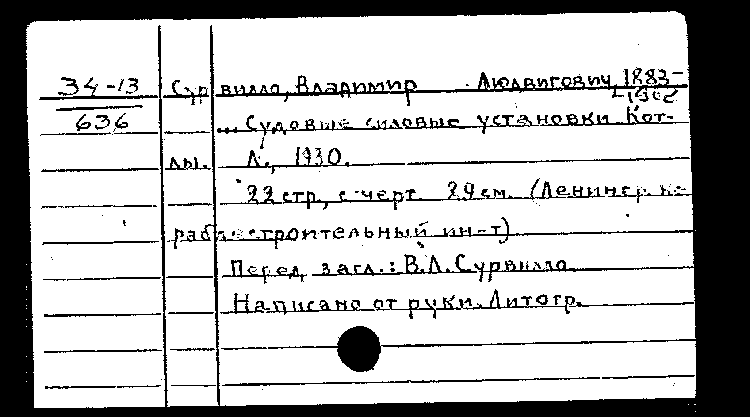 34-13 Сурвилло, Владимир Людвигович, 1883-
-1962
636 ... Судовые силовые установки. Кот-
лы. Л., 1930.
22 стр., с черт. 29 см. (Ленингр. ко-
раблестроительный ин-т)
Перед загл.: В.Л. Сурвилло
Написано от руки. Литогр.